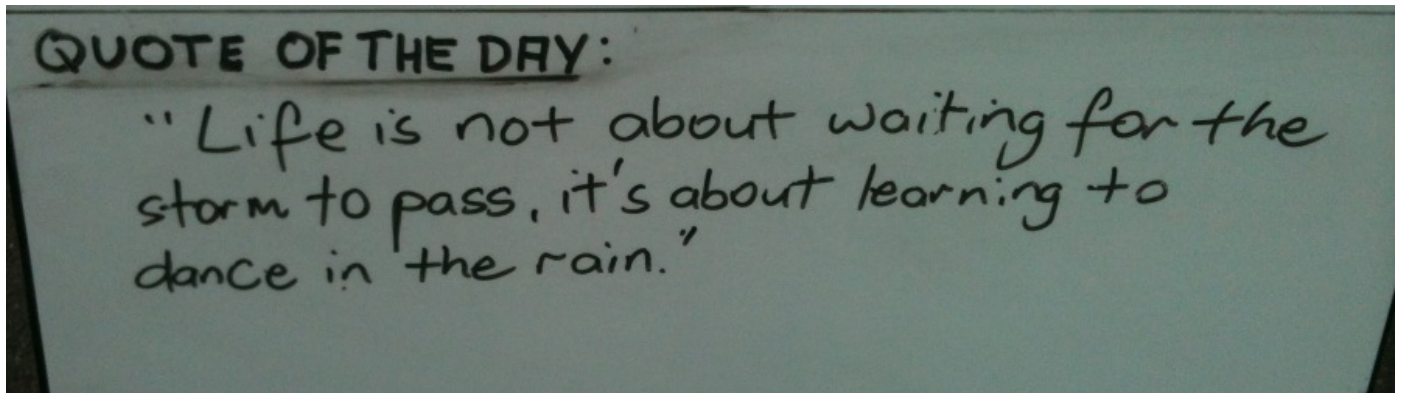 QUOTE OF THE DAY:
"Life is not about waiting for the
storm to pass, it's about learning to
dance in the rain."